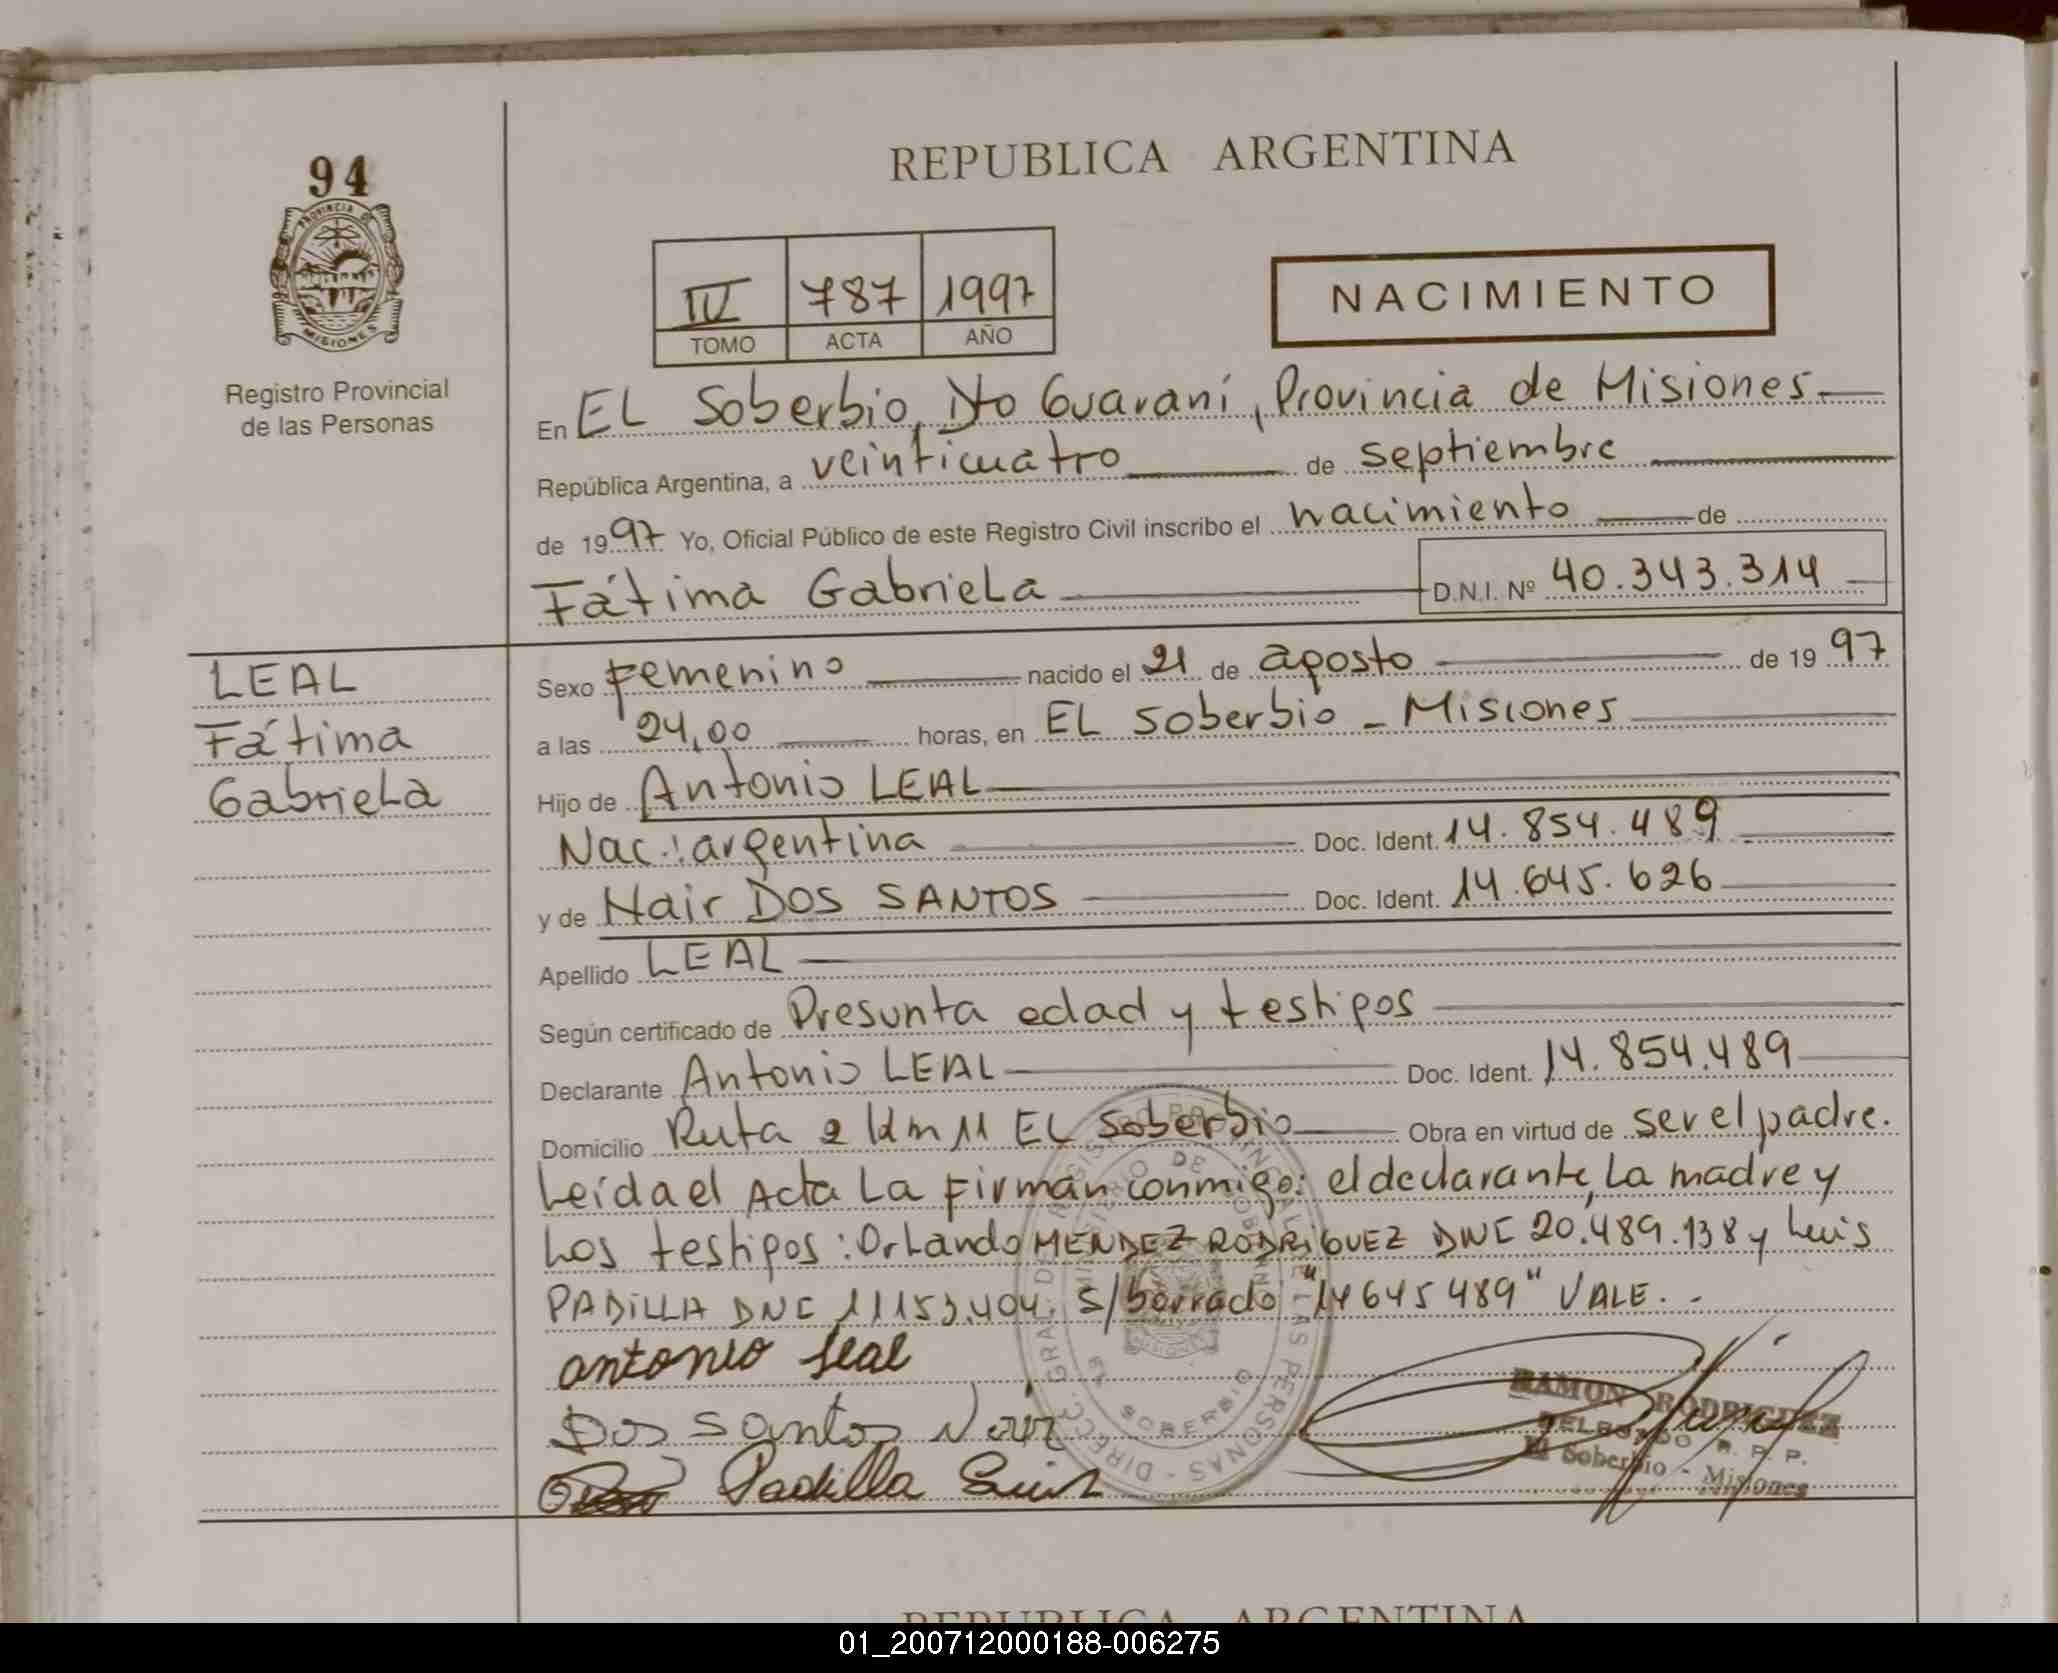 94
PROVINCIA DE
MISIONES
Registro Provincial
de las Personas
REPUBLICA ARGENTINA
IV 787 1997
TOMO ACTA AÑO
NACIMIENTO
En EL Soberbio, Dto Guaraní, Provincia de Misiones
República Argentina, a veinticuatro de septiembre
de 1997 Yo, Oficial Público de este Registro Civil inscribo el nacimiento de
Fátima Gabriela D.N.I. Nº 40.343.314
LEAL
Fátima
Gabriela
Sexo Femenino nacido el 21 de agosto de 1997
a las 24,00 horas, en EL Soberbio - Misiones
Hijo de Antonio LEAL
Nac.: argentina Doc. Ident. 14.854.489
y de Nair DOS SANTOS Doc. Ident. 14.645.626
Apellido LEAL
Según certificado de Presunta edad y testigos
Declarante Antonio LEAL Doc. Ident. 14.854.489
Domicilio Ruta 2 Km 11 EL Soberbio Obra en virtud de ser el padre.
Leída el Acta La Firman conmigo: el declarante, La madre y
Los testigos: Orlando MENDEZ RODRIGUEZ DNI 20.489.138 y Luis
PADILLA DNI 11153.404. S/borrado "14645489" VALE. -
antonio leal
Dos santos Nair
Padilla Luis
RAMON RODRIGUEZ
DELEGADO R. P. P.
El Soberbio - Misiones
DIRECC. GRAL. DE REGISTRO PROVINCIAL DE LAS PERSONAS
MINISTERIO DE GOBIERNO
EL SOBERBIO
MISIONES
REPUBLICA ARGENTINA
01_200712000188-006275